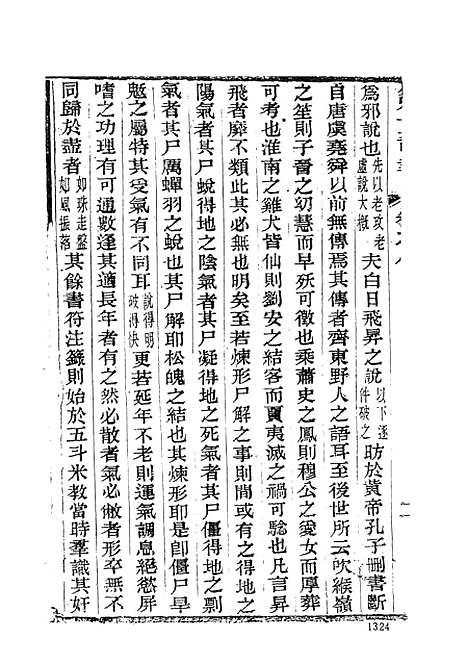 爲邪說也先以老攻老虛說大槪夫白日飛昇之說以下逐件破之昉於黃帝孔子刪書斷
自唐虞堯舜以前無傳焉其傳者齊東野人之語耳至後世所云吹緱嶺
之笙則子晉之幼慧而早殀可徵也乘蕭史之鳳則穆公之愛女而厚葬
可考也淮南之雞犬皆仙則劉安之結客而夷滅之禍可驗也凡言昇
飛者靡不類此其必無也明矣至若煉形尸解之事則間或有之得地之
陽氣者其尸蛻得地之陰氣者其尸凝得地之死氣者其尸僵得地之剽
氣者其尸厲蟬羽之蛻也其尸解耶松魄之結也其煉形耶是卽僵尸旱
魃之屬特其受氣有不同耳說得明破得快更若延年不老則運氣調息絕慾屏
嗜之功理有可通數逢其適長年者有之然必散者氣必敝者形卒無不
同歸於盡者如珠走盤如風振落其餘書符注籙則始於五斗米敎當時羣識其奸
十一
1324